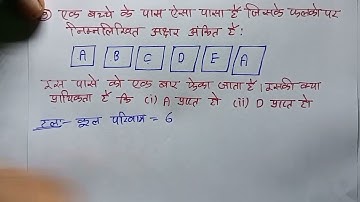 एक बच्चे के पास ऐसा पासा है जिसके फलको पर
निम्नलिखित अक्षर अंकित है:
A B C D E A
इस पासे को एक बार फेका जाता है। इसकी क्या
प्रायिकता है कि (i) A प्राप्त हो (ii) D प्राप्त हो
हल:- कुल परिणाम = 6